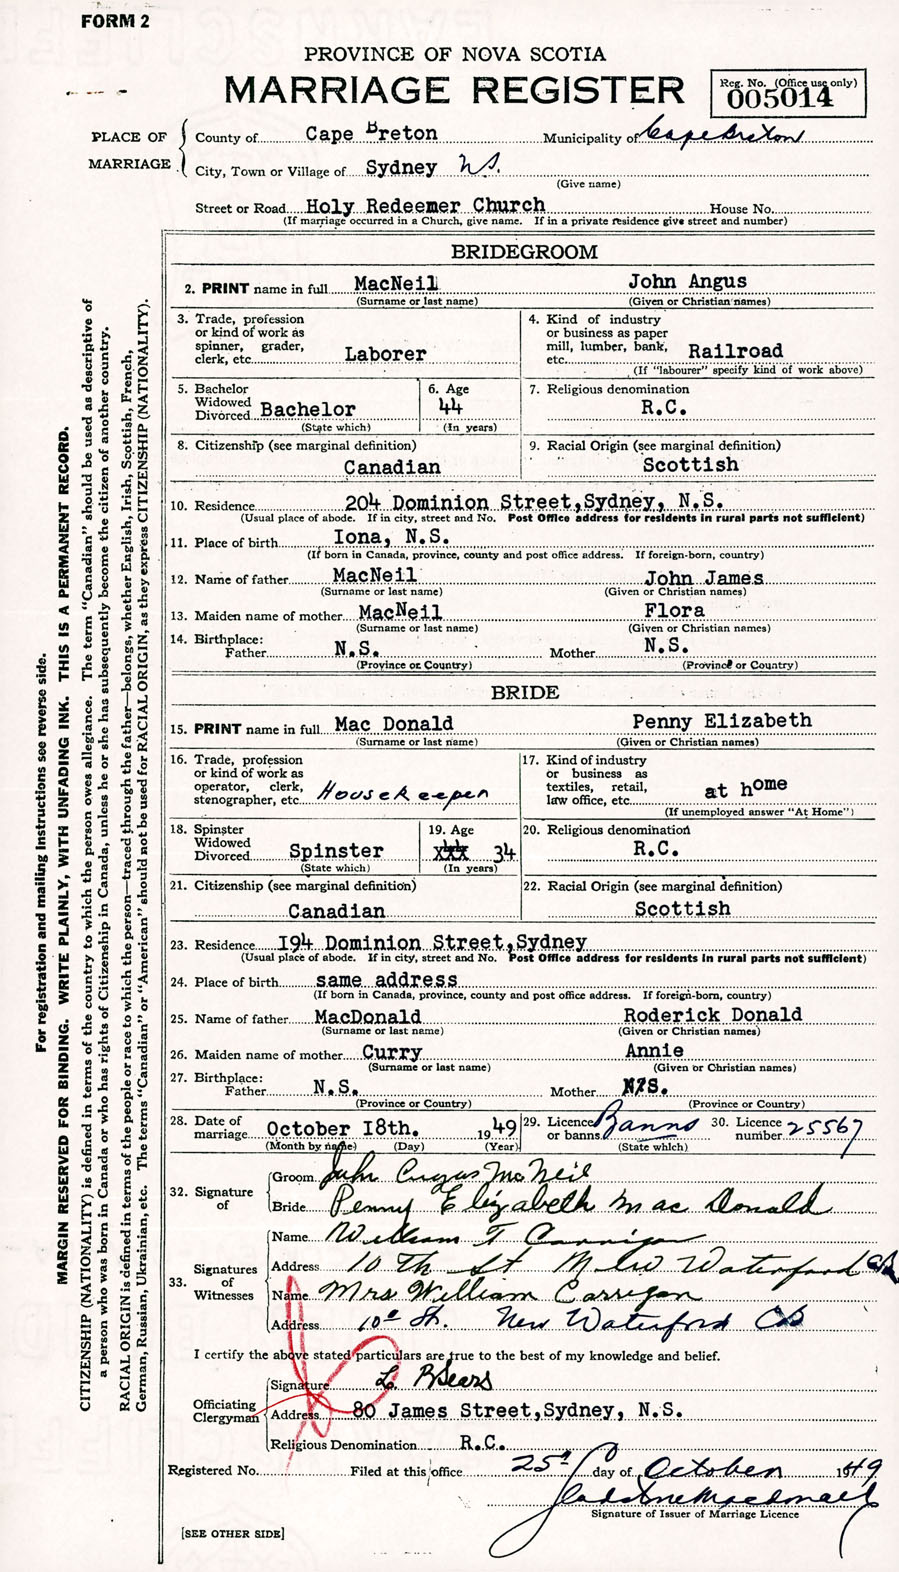 FORM 2
PROVINCE OF NOVA SCOTIA
MARRIAGE REGISTER
Reg. No. (Office use only)
005014
PLACE OF MARRIAGE
County of Cape Breton Municipality of Cape Breton
City, Town or Village of Sydney N.S.
(Give name)
Street or Road Holy Redeemer Church House No.
(If marriage occurred in a Church, give name. If in a private residence give street and number)
BRIDEGROOM
2. PRINT name in full MacNeil John Angus
(Surname or last name) (Given or Christian names)
3. Trade, profession or kind of work as spinner, grader, clerk, etc. Laborer
4. Kind of industry or business as paper mill, lumber, bank, etc. Railroad
(If "labourer" specify kind of work above)
5. Bachelor Widowed Divorced Bachelor
(State which)
6. Age 44
(In years)
7. Religious denomination
R.C.
8. Citizenship (see marginal definition)
Canadian
9. Racial Origin (see marginal definition)
Scottish
10. Residence 204 Dominion Street,Sydney, N.S.
(Usual place of abode. If in city, street and No. Post Office address for residents in rural parts not sufficient)
11. Place of birth Iona, N.S.
(If born in Canada, province, county and post office address. If foreign-born, country)
12. Name of father MacNeil John James
(Surname or last name) (Given or Christian names)
13. Maiden name of mother MacNeil Flora
(Surname or last name) (Given or Christian names)
14. Birthplace:
Father N.S. Mother N.S.
(Province or Country) (Province or Country)
BRIDE
15. PRINT name in full Mac Donald Penny Elizabeth
(Surname or last name) (Given or Christian names)
16. Trade, profession or kind of work as operator, clerk, stenographer, etc. Housekeeper
17. Kind of industry or business as textiles, retail, law office, etc. at home
(If unemployed answer "At Home")
18. Spinster Widowed Divorced Spinster
(State which)
19. Age xxx 34
(In years)
20. Religious denomination
R.C.
21. Citizenship (see marginal definition)
Canadian
22. Racial Origin (see marginal definition)
Scottish
23. Residence I94 Dominion Street,Sydney
(Usual place of abode. If in city, street and No. Post Office address for residents in rural parts not sufficient)
24. Place of birth same address
(If born in Canada, province, county and post office address. If foreign-born, country)
25. Name of father MacDonald Roderick Donald
(Surname or last name) (Given or Christian names)
26. Maiden name of mother Curry Annie
(Surname or last name) (Given or Christian names)
27. Birthplace:
Father N.S. Mother N.S.
(Province or Country) (Province or Country)
28. Date of marriage October I8th. 1949
(Month by name) (Day) (Year)
29. Licence or banns Banns
(State which)
30. Licence number 25567
32. Signature of
Groom John Angus McNeil
Bride Penny Elizabeth Mac Donald
33. Signatures of Witnesses
Name William T Carrigan
Address 10 Th St New Waterford CB
Name Mrs William Carrigan
Address 10th St. New Waterford CB
I certify the above stated particulars are true to the best of my knowledge and belief.
Officiating Clergyman
Signature L. R Sears
Address 80 James Street,Sydney, N.S.
Religious Denomination R.C.
Registered No. Filed at this office 25th day of October 1949
Gladstone Macdonald
Signature of Issuer of Marriage Licence
[SEE OTHER SIDE]
For registration and mailing instructions see reverse side.
MARGIN RESERVED FOR BINDING. WRITE PLAINLY, WITH UNFADING INK. THIS IS A PERMANENT RECORD.
CITIZENSHIP (NATIONALITY) is defined in terms of the country to which the person owes allegiance. The term "Canadian" should be used as descriptive of
a person who was born in Canada or who has rights of Citizenship in Canada, unless he or she has subsequently become the citizen of another country.
RACIAL ORIGIN is defined in terms of the people or race to which the person—traced through the father—belongs, whether English, Irish, Scottish, French,
German, Russian, Ukrainian, etc. The terms "Canadian" or "American" should not be used for RACIAL ORIGIN, as they express CITIZENSHIP (NATIONALITY).